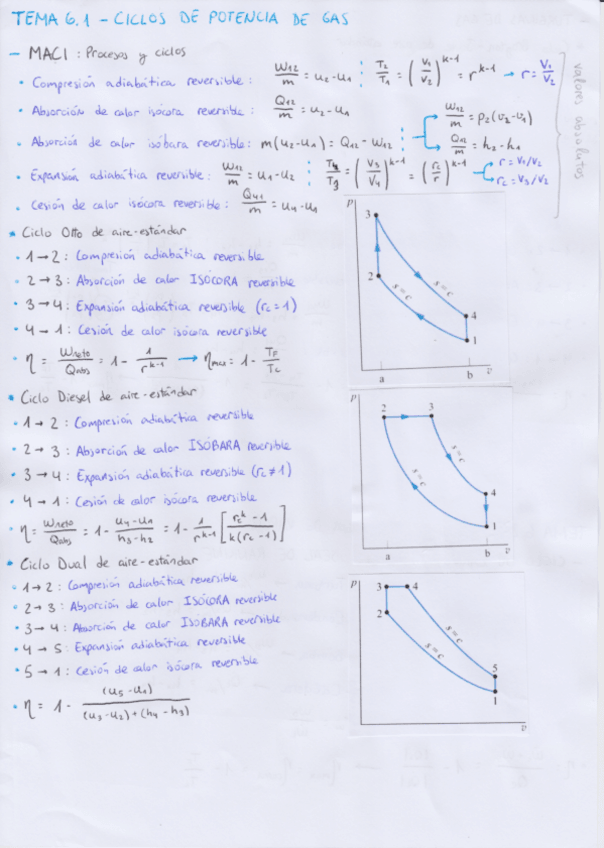 TEMA 6.1 - CICLOS DE POTENCIA DE GAS
- MACI : Procesos y ciclos
• Compresión adiabática reversible : W12/m = u2 - u1 ⋮ T2/T1 = (V1/V2)^k-1 = r^k-1 → r = V1/V2
• Absorción de calor isócora reversible : Q12/m = u2 - u1
• Absorción de calor isóbara reversible : m(u2 - u1) = Q12 - W12 ⋮ → W12/m = p2(v2 - v1)
→ Q12/m = h2 - h1
• Expansión adiabática reversible : W12/m = u1 - u2 ⋮ T4/T3 = (V3/V4)^k-1 = (rc/r)^k-1 → r = V1/V2
→ rc = V3/V2
• Cesión de calor isócora reversible : Q41/m = u4 - u1
valores absolutos
* Ciclo Otto de aire-estándar
• 1 → 2 : Compresión adiabática reversible
• 2 → 3 : Absorción de calor ISÓCORA reversible
• 3 → 4 : Expansión adiabática reversible (rc = 1)
• 4 → 1 : Cesión de calor isócora reversible
• η = Wneto/Qabs = 1 - 1/r^k-1 → ηmax = 1 - TF/TC
p
3
2
s = c
s = c
4
1
a b v
• Ciclo Diesel de aire-estándar
• 1 → 2 : Compresión adiabática reversible
• 2 → 3 : Absorción de calor ISÓBARA reversible
• 3 → 4 : Expansión adiabática reversible (rc ≠ 1)
• 4 → 1 : Cesión de calor isócora reversible
• η = Wneto/Qabs = 1 - u4 - u1/h3 - h2 = 1 - 1/r^k-1 [rc^k - 1/k(rc - 1)]
p
2 3
s = c
s = c
4
1
a b v
• Ciclo Dual de aire-estándar
• 1 → 2 : Compresión adiabática reversible
• 2 → 3 : Absorción de calor ISÓCORA reversible
• 3 → 4 : Absorción de calor ISÓBARA reversible
• 4 → 5 : Expansión adiabática reversible
• 5 → 1 : Cesión de calor isócora reversible
• η = 1 - (u5 - u1)/(u3 - u2) + (h4 - h3)
p
3 4
2
s = c
s = c
5
1
v